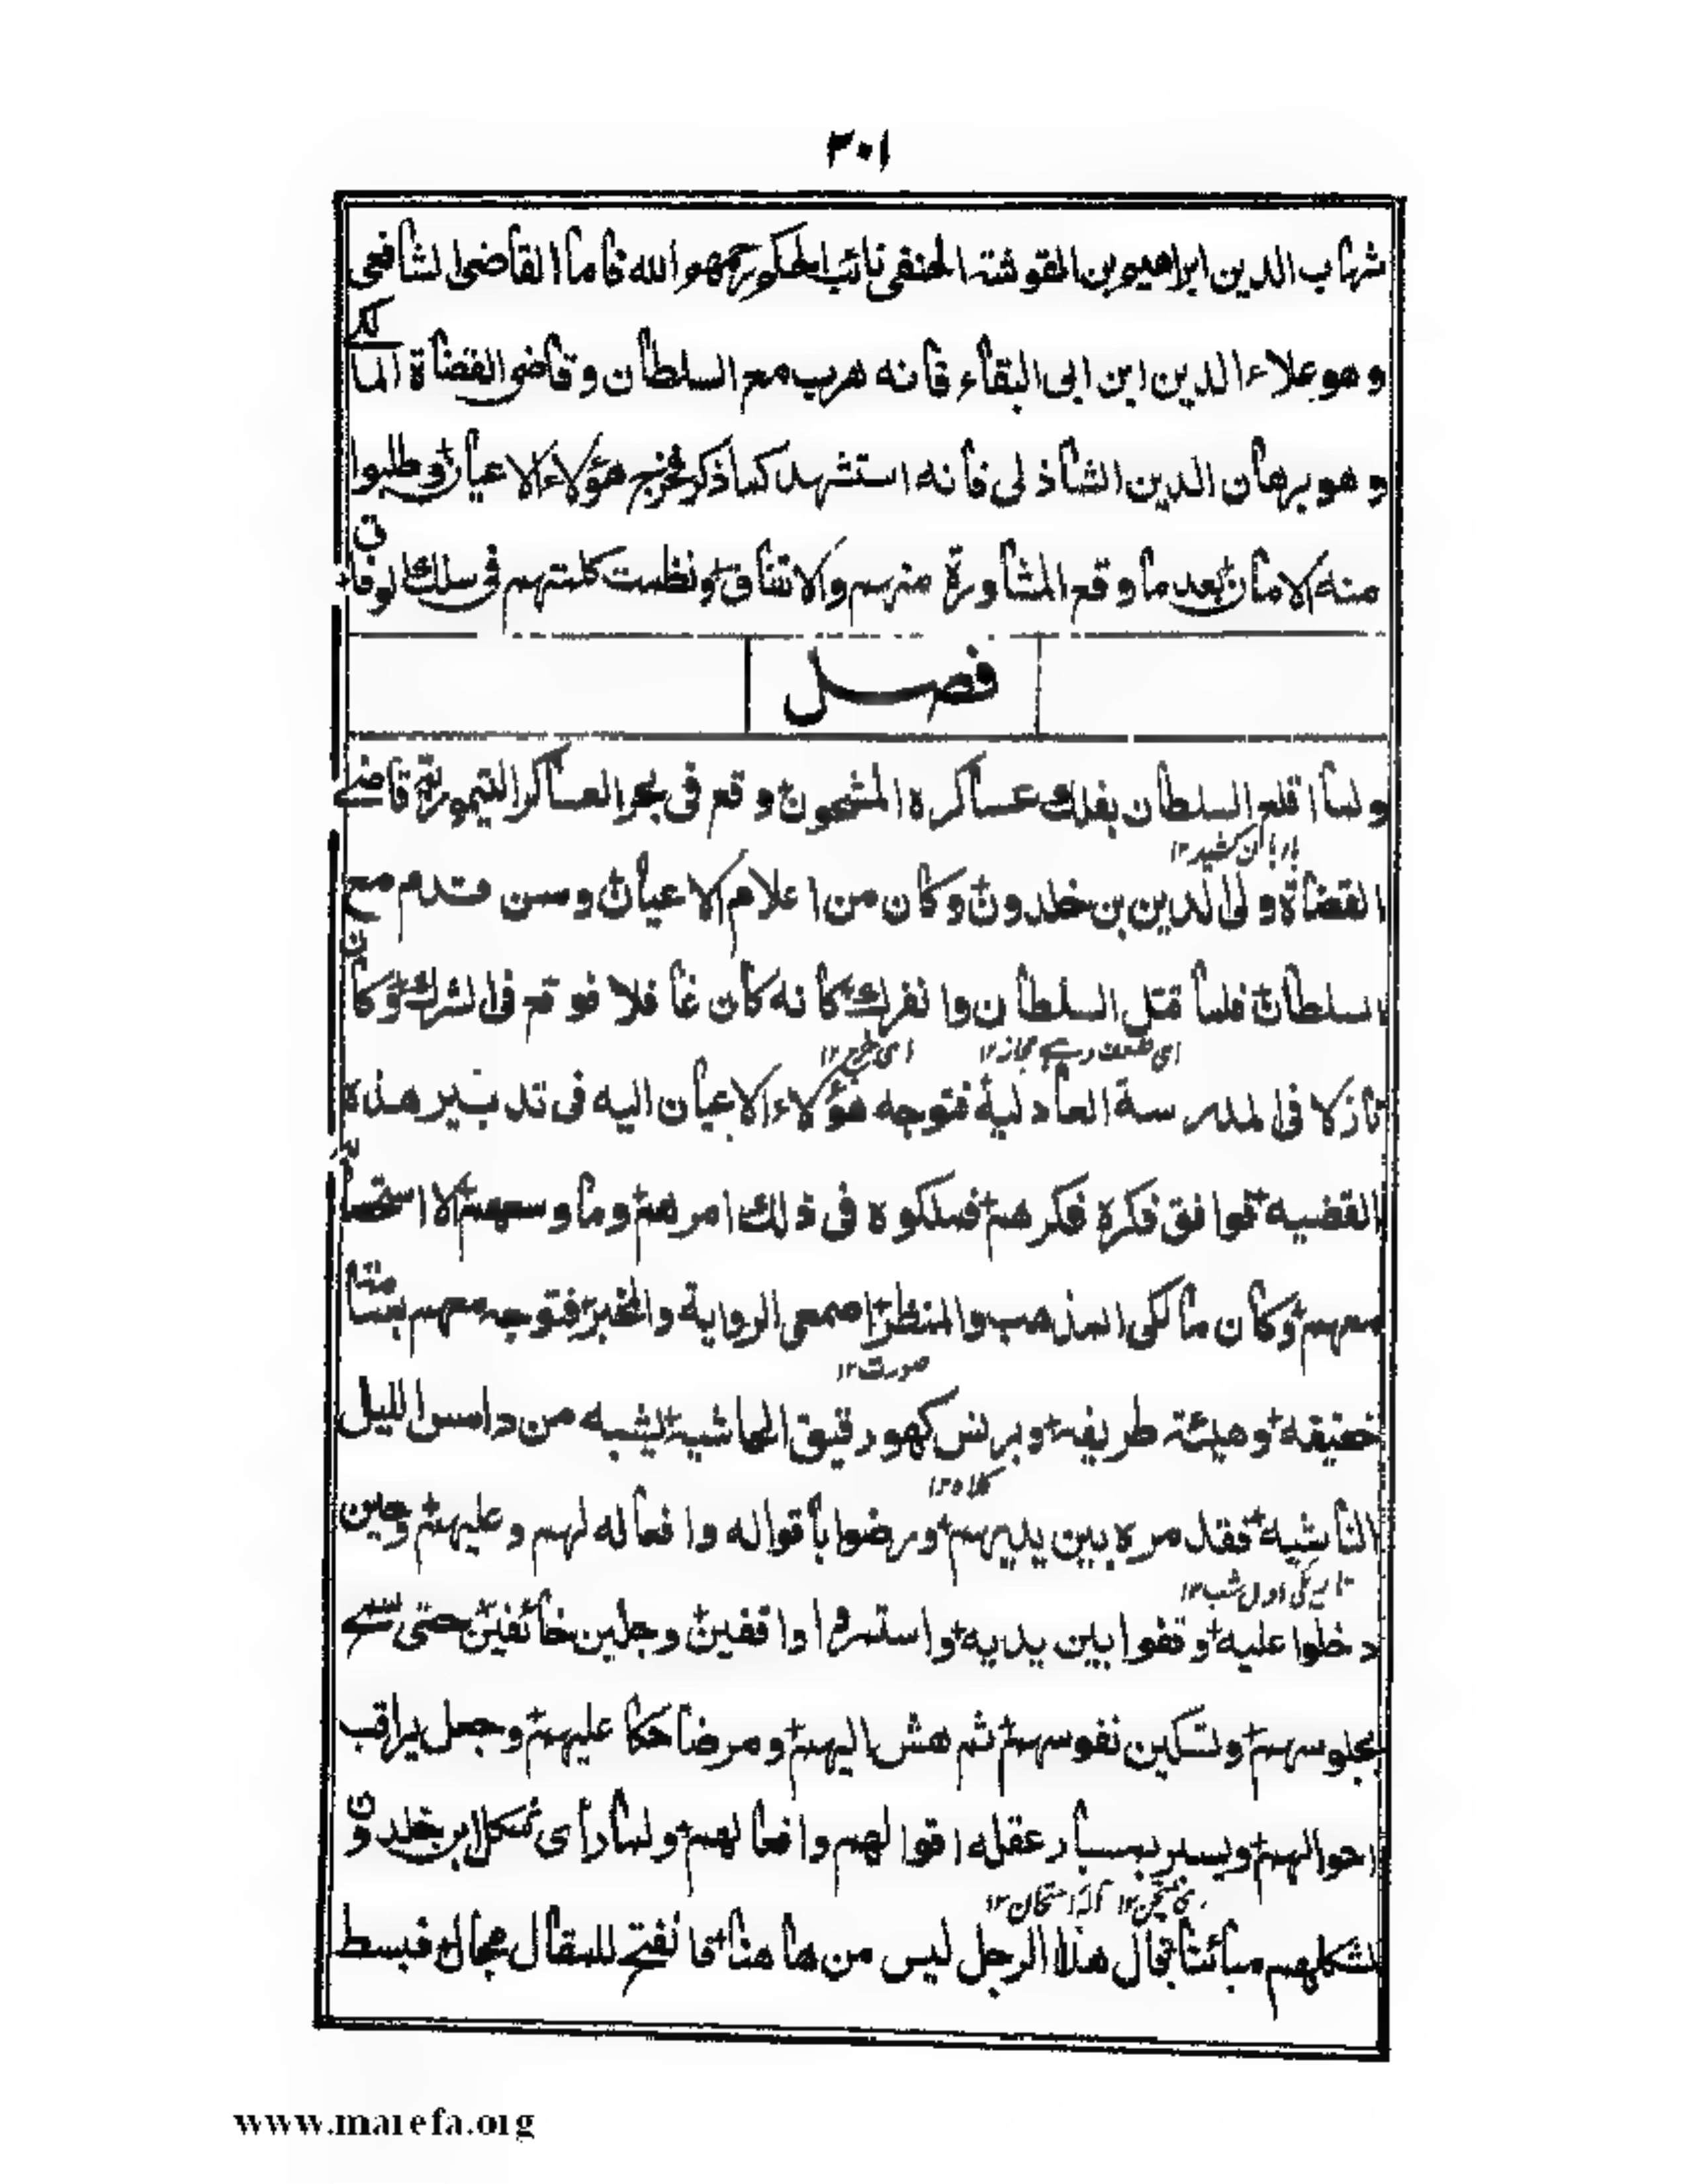 ٣٠١
شهاب الدين ابراهيم بن القوشة الحنفى نائب الحكم رحمهم الله فاما القاضى الشافعى
وهو علاء الدين ابن ابى البقاء فانه هرب مع السلطان وقاضى القضاة المالكى
وهو برهان الدين الشاذلى فانه استشهد كما ذكر فخرج هؤلاء الاعيان وطلبوا
منه الامان بعد ما وقع المشاورة منهم والاتفاق ونظمت كلمتهم فى سلك الوفاق
فصل
ولما اقلع السلطان بفلك عساكره المشحون وقع فى بحر العساكر التيمورية قاضى
بادبان كشيد ١٢
القضاة ولى الدين بن خلدون وكان من اعلام الاعيان ومن قدم مع
السلطان فلما قتل السلطان وانفرك كانه كان غافلا فوقع فى الشرك وكان
نازلا فى المدرسة العادلية فتوجه هؤلاء الاعيان اليه فى تدبير هذه
القضيه فوافق فكره فكرهم فملكوه فى ذلك امرهم وما وسعهم الا استصحابه
معهم وكان مالكى المذهب والمنظر اصمعى الرواية والخبر فتوجه معهم بعمامة
صورت ١٢
خفيفه وهيئة طريفه وبرنس كهو رقيق الحاشيه يشبه من دامس الليل
كلاه ١٢
الناشيه فقدمره بين يديهم ورضوا باقواله وافعاله لهم وعليهم وحين
تاريكى اول شب ١٢
دخلوا عليه وقفوا بين يديه واستمروا واقفين وجلين خائفين حتى سمح
بجلوسهم وتسكين نفوسهم ثم هش اليهم ومر ضاحكا عليهم وجعل يراقب
احوالهم ويسبر بمسبار عقله اقوالهم وافعالهم ولما رأى شكل ابن خلدون
آله امتحان ١٢
لشكلهم مبائنا قال هذا الرجل ليس من هاهنا فانفتح للمقال مجال فبسط
www.marefa.org